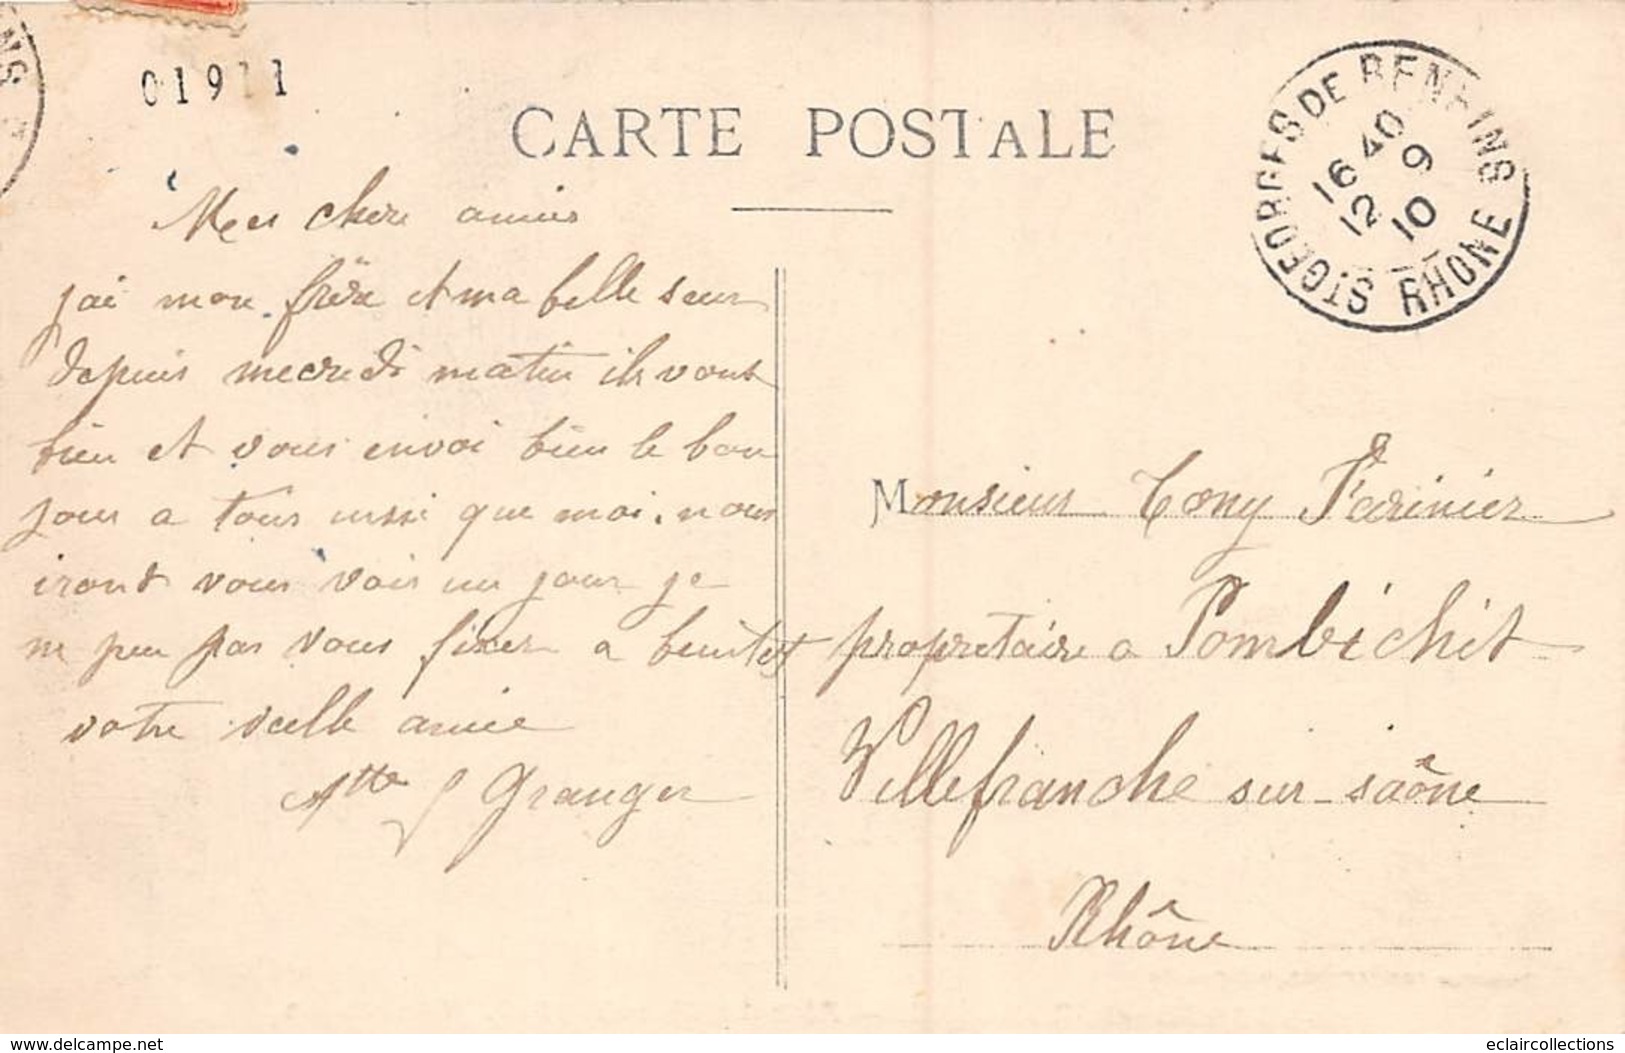 NS
01911
CARTE POSTALE
ST GEORGES DE RENEINS RHONE
16 40
12 9
10
Mes chere amies
jai mon frere et ma belle seur
depuis mecredi matin ils vont
bien et vous envoi bien le bon
jour a tous ausi que moi. nous
iront vous voir un jour je
ne peu pas vous fixer a bientot
votre vielle amie
Atte Granger
Monsieur Tony Farinier
propretaire a Pombichit
Villefranche sur saône
Rhône
www.delcampe.net
eclaircollections